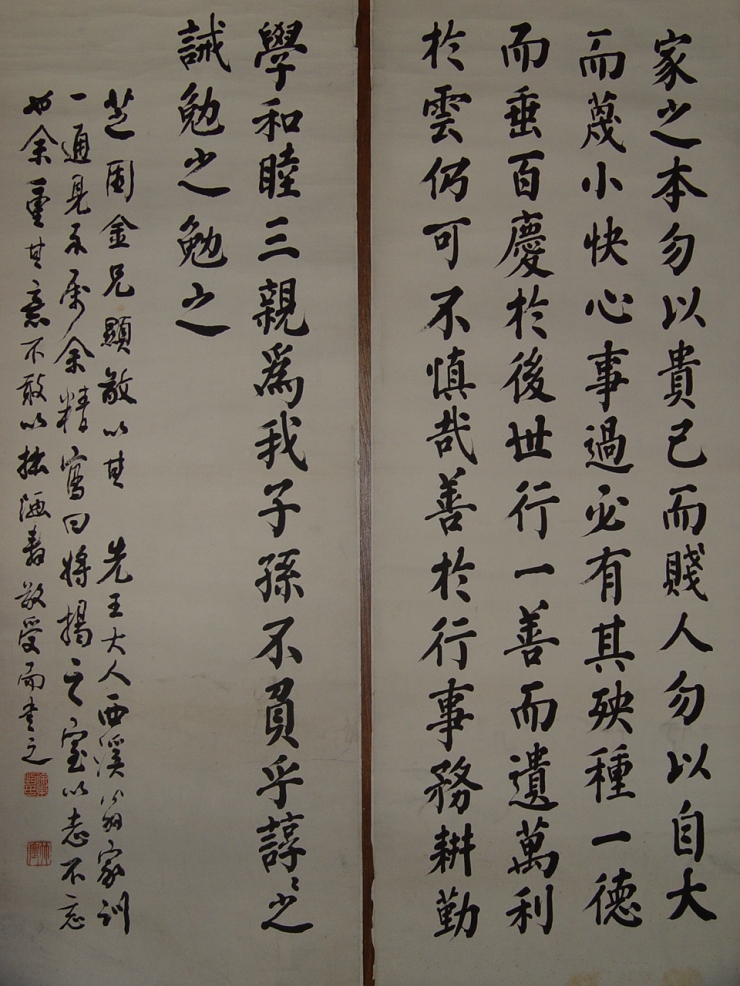 家之本勿以貴己而賤人勿以自大
而蔑小快心事過必有其殃種一德
而垂百慶於後世行一善而遺萬利
於雲仍可不慎哉善於行事務耕勤
學和睦三親為我子孫不負乎諄〻之
誡勉之勉之
芝園金兄顯敬以其 先王大人西溪翁家訓
一通見示屬余精寫曰將揭之室以志不忘
也余重其意不敢以拙陋辭敬受而書之